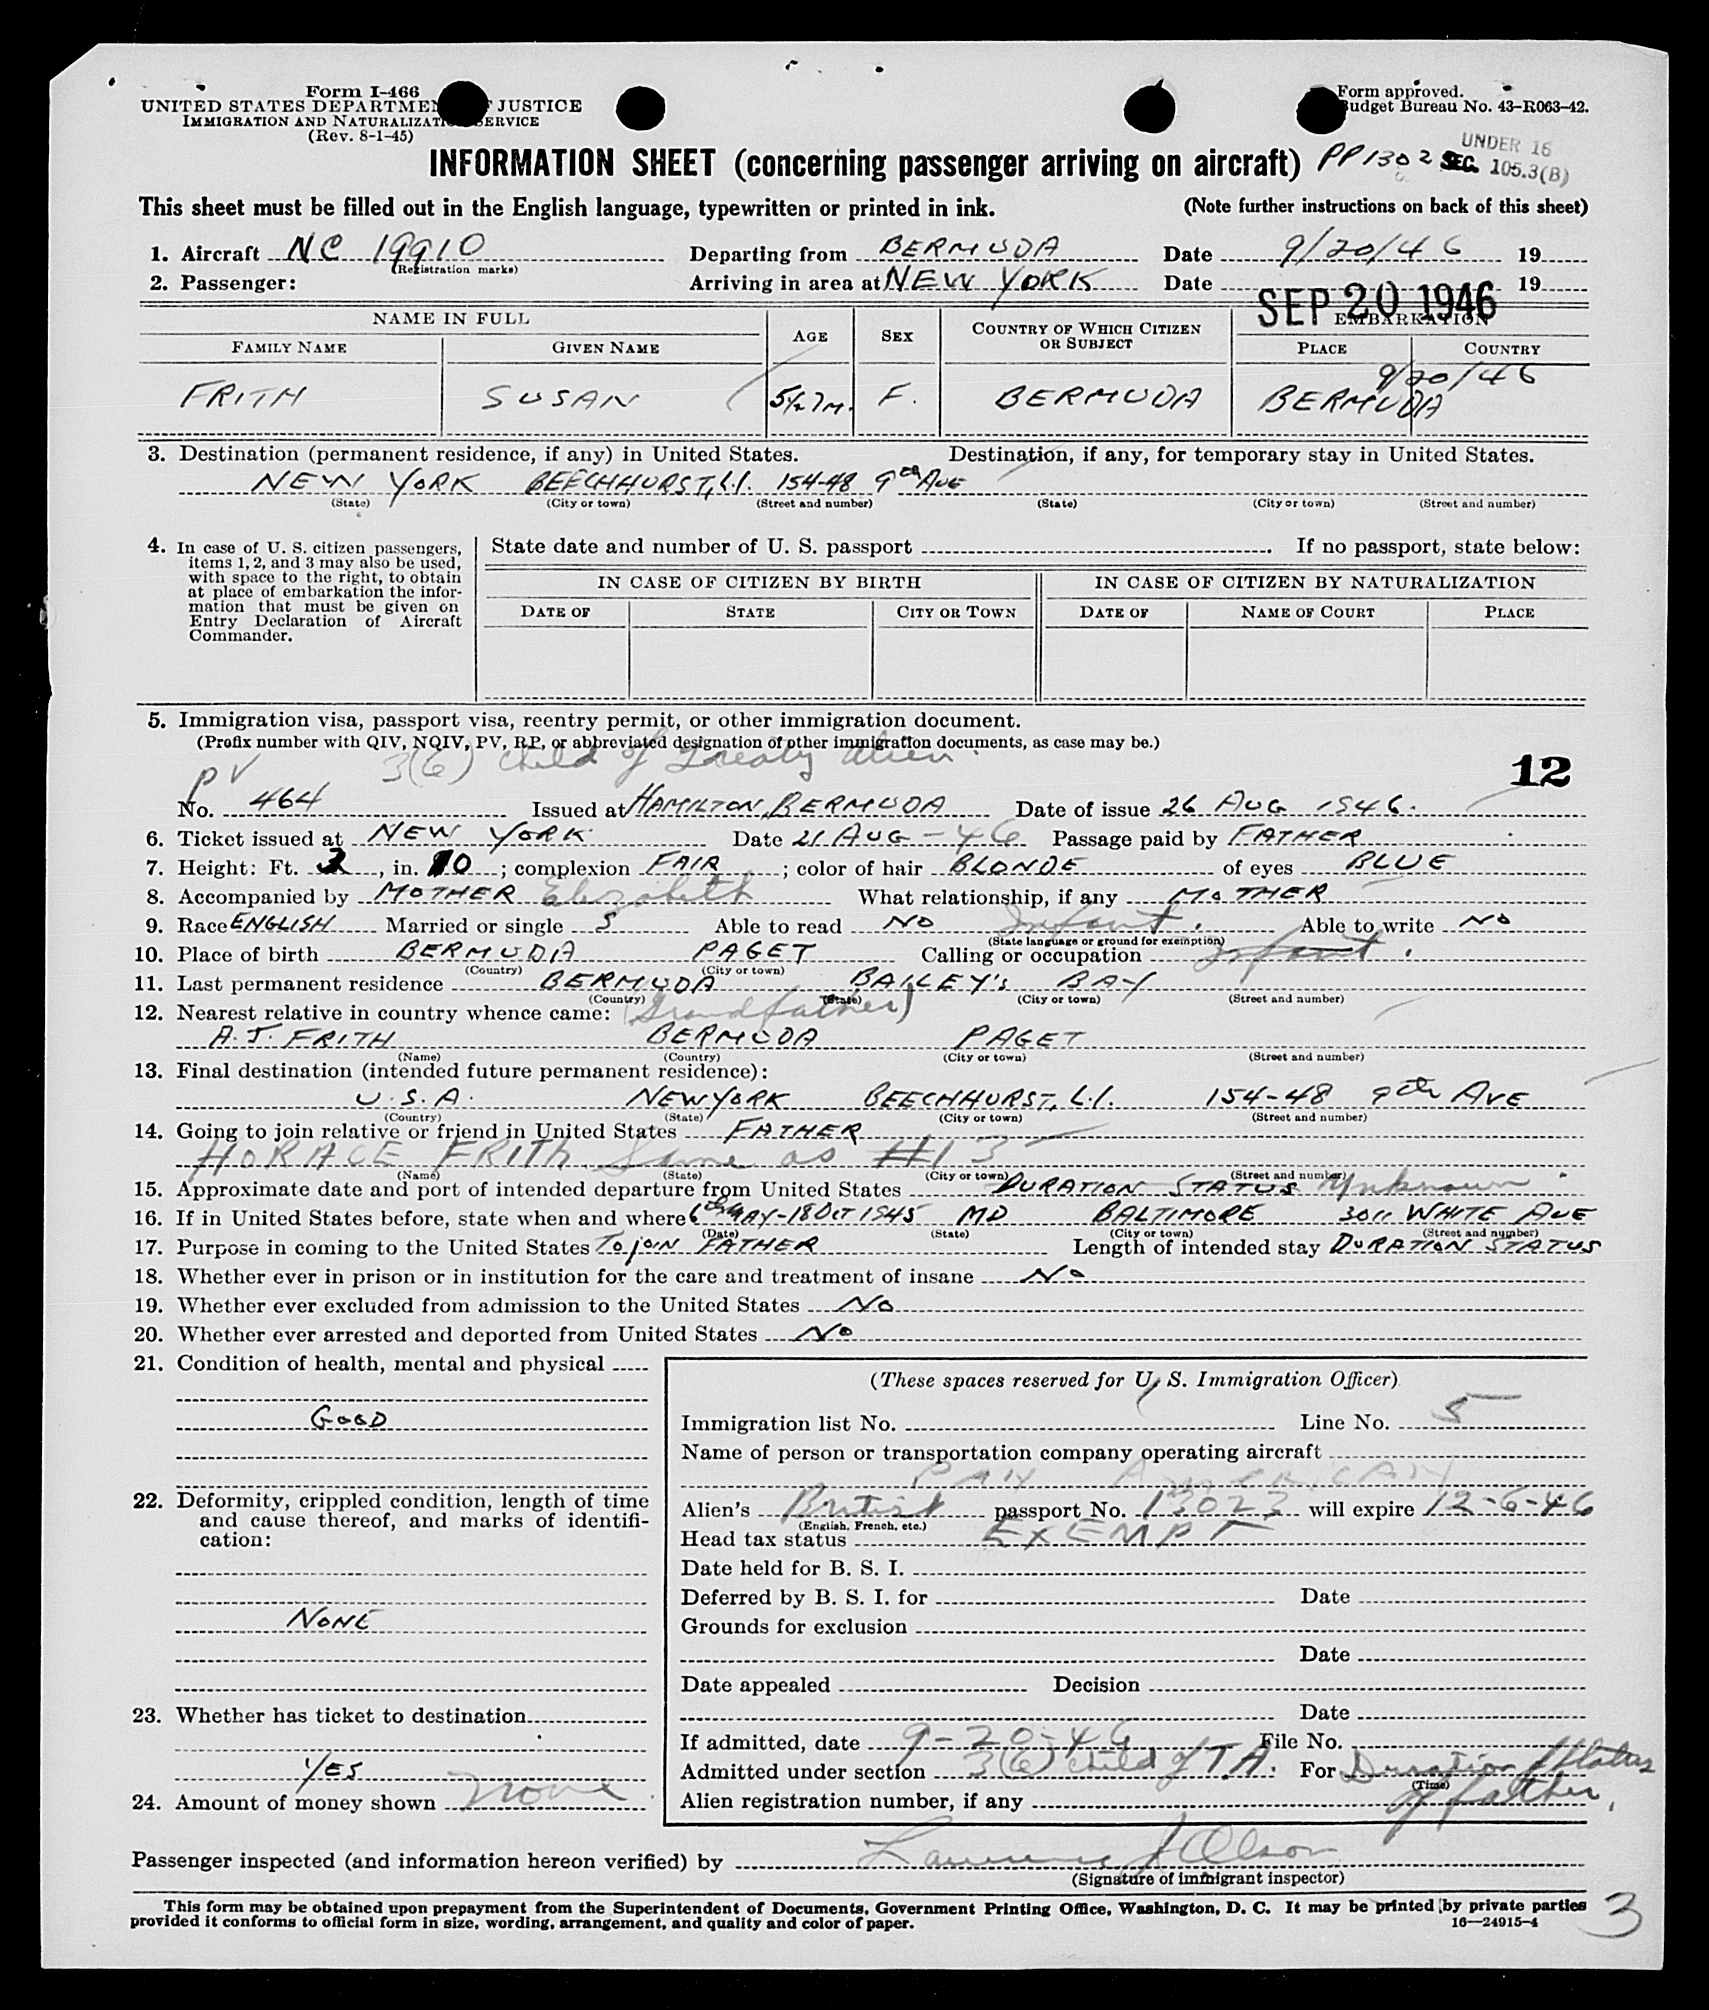 Form I-466
UNITED STATES DEPARTMENT OF JUSTICE
IMMIGRATION AND NATURALIZATION SERVICE
(Rev. 8-1-45)
Form approved.
Budget Bureau No. 43-R063-42.
UNDER 16
INFORMATION SHEET (concerning passenger arriving on aircraft) PP 1302 SEC. 105.3(B)
This sheet must be filled out in the English language, typewritten or printed in ink. (Note further instructions on back of this sheet)
1. Aircraft NC 19910 Departing from BERMUDA Date 9/20/46 19
(Registration marks)
2. Passenger: Arriving in area at NEW YORK Date 19
SEP 20 1946
NAME IN FULL AGE SEX COUNTRY OF WHICH CITIZEN OR SUBJECT EMBARKATION
FAMILY NAME GIVEN NAME PLACE COUNTRY
9/20/46
FRITH SUSAN F. BERMUDA BERMUDA
3. Destination (permanent residence, if any) in United States. Destination, if any, for temporary stay in United States.
NEW YORK BEECHHURST, L.I. 154-48 9th AVE
(State) (City or town) (Street and number) (State) (City or town) (Street and number)
4. In case of U. S. citizen passengers, items 1, 2, and 3 may also be used, with space to the right, to obtain at place of embarkation the information that must be given on Entry Declaration of Aircraft Commander.
State date and number of U. S. passport . If no passport, state below:
IN CASE OF CITIZEN BY BIRTH IN CASE OF CITIZEN BY NATURALIZATION
DATE OF STATE CITY OR TOWN DATE OF NAME OF COURT PLACE
5. Immigration visa, passport visa, reentry permit, or other immigration document.
(Prefix number with QIV, NQIV, PV, RP, or abbreviated designation of other immigration documents, as case may be.)
3(6) child of Treaty Alien.
12
PV
No. 464 Issued at HAMILTON, BERMUDA Date of issue 26 AUG 1946.
6. Ticket issued at NEW YORK Date 21 AUG-46 Passage paid by FATHER
7. Height: Ft. 2, in. 10; complexion FAIR; color of hair BLONDE of eyes BLUE
8. Accompanied by MOTHER Elizabeth What relationship, if any MOTHER
9. Race ENGLISH Married or single S Able to read NO Infant. Able to write NO
(State language or ground for exemption)
10. Place of birth BERMUDA PAGET Calling or occupation Infant.
(Country) (City or town)
11. Last permanent residence BERMUDA BAILEY'S BAY
(Country) (State) (City or town) (Street and number)
12. Nearest relative in country whence came: (Grandfather)
A. J. FRITH BERMUDA PAGET
(Name) (Country) (City or town) (Street and number)
13. Final destination (intended future permanent residence):
U.S.A. NEW YORK BEECHHURST, L.I. 154-48 9th AVE
(Country) (State) (City or town) (Street and number)
14. Going to join relative or friend in United States FATHER
HORACE FRITH Same as #13
(Name) (State) (City or town) (Street and number)
15. Approximate date and port of intended departure from United States DURATION STATUS Unknown
16. If in United States before, state when and where MAY-18 OCT 1945 MD BALTIMORE 3011 WHITE AVE
(Date) (State) (City or town) (Street and number)
17. Purpose in coming to the United States To join FATHER Length of intended stay DURATION STATUS
18. Whether ever in prison or in institution for the care and treatment of insane No
19. Whether ever excluded from admission to the United States No
20. Whether ever arrested and deported from United States No
21. Condition of health, mental and physical
GOOD
22. Deformity, crippled condition, length of time and cause thereof, and marks of identification:
NONE
23. Whether has ticket to destination
YES
24. Amount of money shown none
(These spaces reserved for U. S. Immigration Officer)
Immigration list No. Line No. 5
Name of person or transportation company operating aircraft
PAN AMERICAN
Alien's British passport No. 13023 will expire 12-6-46
(English, French, etc.)
Head tax status EXEMPT
Date held for B. S. I.
Deferred by B. S. I. for Date
Grounds for exclusion
Date
Date appealed Decision
Date
If admitted, date 9-20-46 File No.
Admitted under section 3(6) child of T.A. For Duration Status
(Time)
Alien registration number, if any of father.
Passenger inspected (and information hereon verified) by Lawrence J. Olson
(Signature of immigrant inspector)
This form may be obtained upon prepayment from the Superintendent of Documents, Government Printing Office, Washington, D. C. It may be printed by private parties
provided it conforms to official form in size, wording, arrangement, and quality and color of paper. 16—24915-4
3